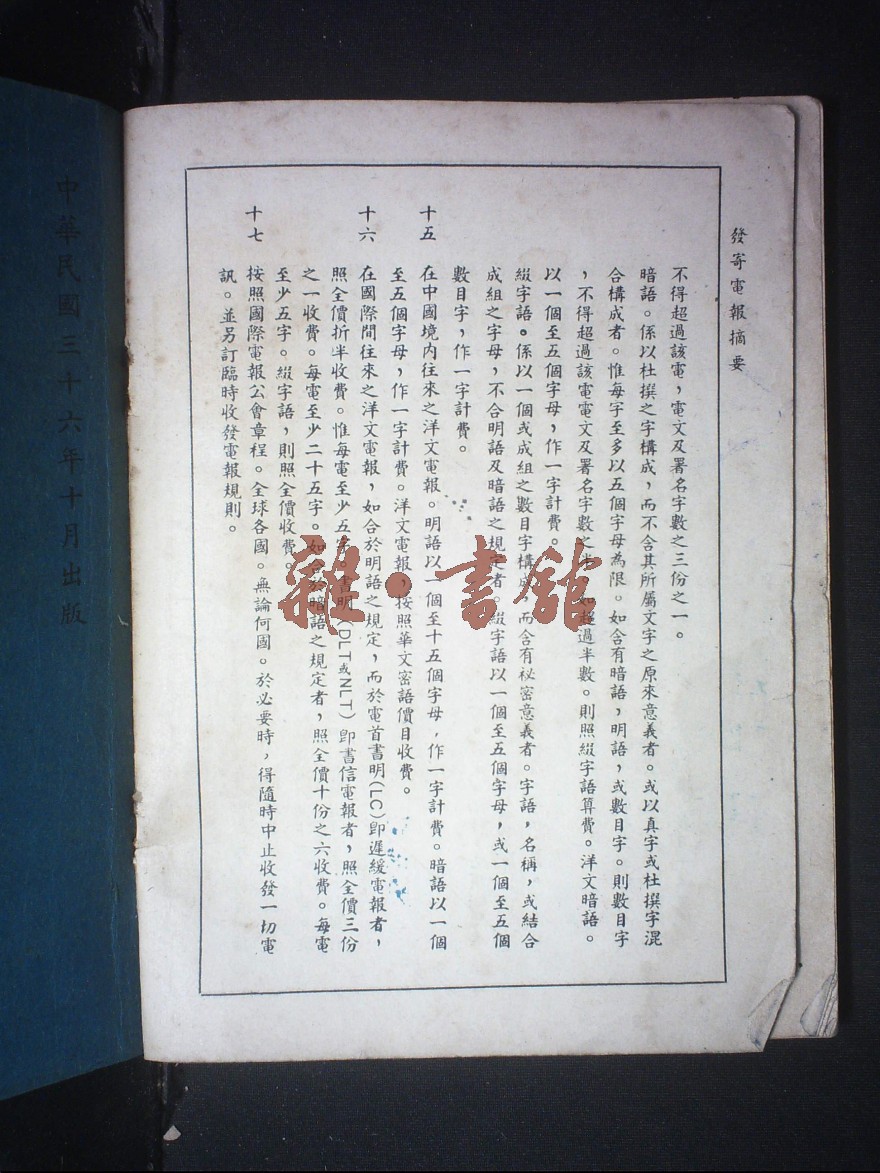 發寄電報摘要
不得超過該電，電文及署名字數之三份之一。
暗語。係以杜撰之字構成，而不含其所屬文字之原來意義者。或以真字或杜撰字混
合構成者。惟每字至多以五個字母為限。如含有暗語，明語，或數目字。則數目字
，不得超過該電電文及署名字數之半，如超過半數。則照綴字語算費。洋文暗語。
以一個至五個字母，作一字計費。
綴字語。係以一個或成組之數目字構成，而含有祕密意義者。字語，名稱，或結合
成組之字母，不合明語及暗語之規定者。綴字語以一個至五個字母，或一個至五個
數目字，作一字計費。
十五　在中國境内往來之洋文電報。明語以一個至十五個字母，作一字計費。暗語以一個
至五個字母，作一字計費。洋文電報，按照華文密語價目收費。
十六　在國際間往來之洋文電報，如合於明語之規定，而於電首書明(LC)卽遲緩電報者，
照全價折半收費。惟每電至少五字。書明(DLT或NLT)卽書信電報者，照全價三份
之一收費。每電至少二十五字。如合於暗語之規定者，照全價十份之六收費。每電
至少五字。綴字語，則照全價收費。
十七　按照國際電報公會章程。全球各國。無論何國。於必要時，得隨時中止收發一切電
訊。並另訂臨時收發電報規則。
中華民國三十六年十月出版
雜·書館